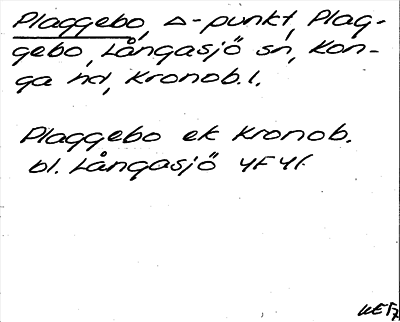 Plaggebo, △-punkt, Plag-
gebo, Långasjö sn, Kon-
ga hd, Kronob. l.
Plaggebo ek Kronob.
bl. Långasjö 4F4f